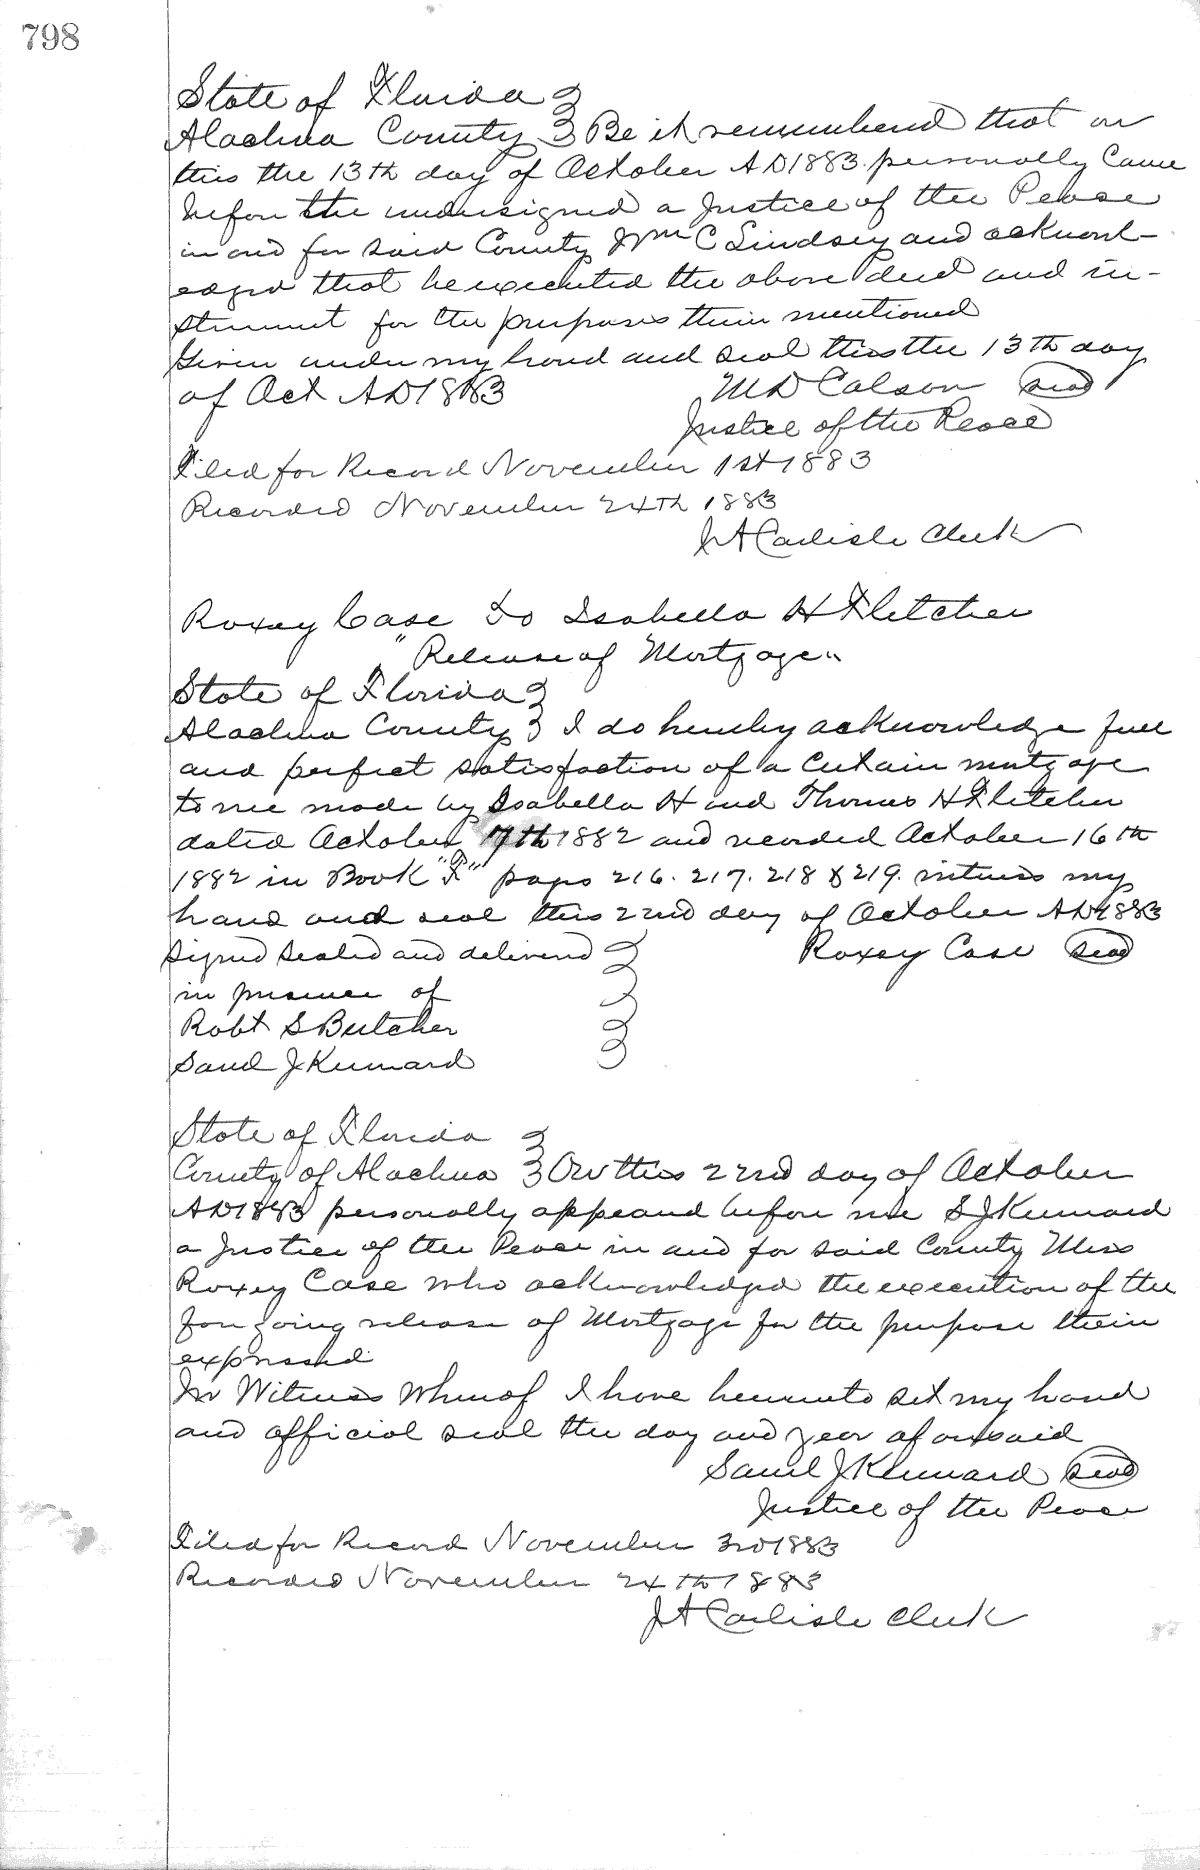 798
State of Florida }
Alachua County } Be it remembered that on
this the 13th day of October AD 1883 personally Came
before the undersigned a Justice of the Pease
in and for said County Wm C Lindsey and acknowl-
edged that he executed the above deed and in-
strument for the purposes therin mentioned
Given under my hand and seal this the 13th day
of Oct AD 1883 M D Colson seal
Justice of the Peace
Filed for Record November 1st 1883
Recorded November 24th 1883
J A Carlisle Clerk
Roxey Case To Isabella H Fletcher
"Release of Mortgage"
State of Florida }
Alachua County } I do hereby acknowledge full
and perfect satisfaction of a Certain mortgage
to me made by Isabella H and Thomas H Fletcher
dated October 7th 1882 and recorded October 16th
1882 in Book "F" pages 216. 217. 218 & 219. witness my
hand and seal this 22nd day of October AD 1883
Signed Sealed and delivered } Roxey Case seal
in presence of
Robt S Butcher
Saml J Kennard
State of Florida }
County of Alachua } On this 22nd day of October
AD 1883 personally appeared before me S J Kennard
a Justice of the Peace in and for said County Miss
Roxey Case who acknowledged the execution of the
foregoing release of Mortgage for the purpose therin
expressed
In Witness Whereof I have hereunto set my hand
and official seal the day and year aforesaid
Saml J Kennard seal
Justice of the Peace
Filed for Record November 3rd 1883
Recorded November 24th 1883
J A Carlisle Clerk